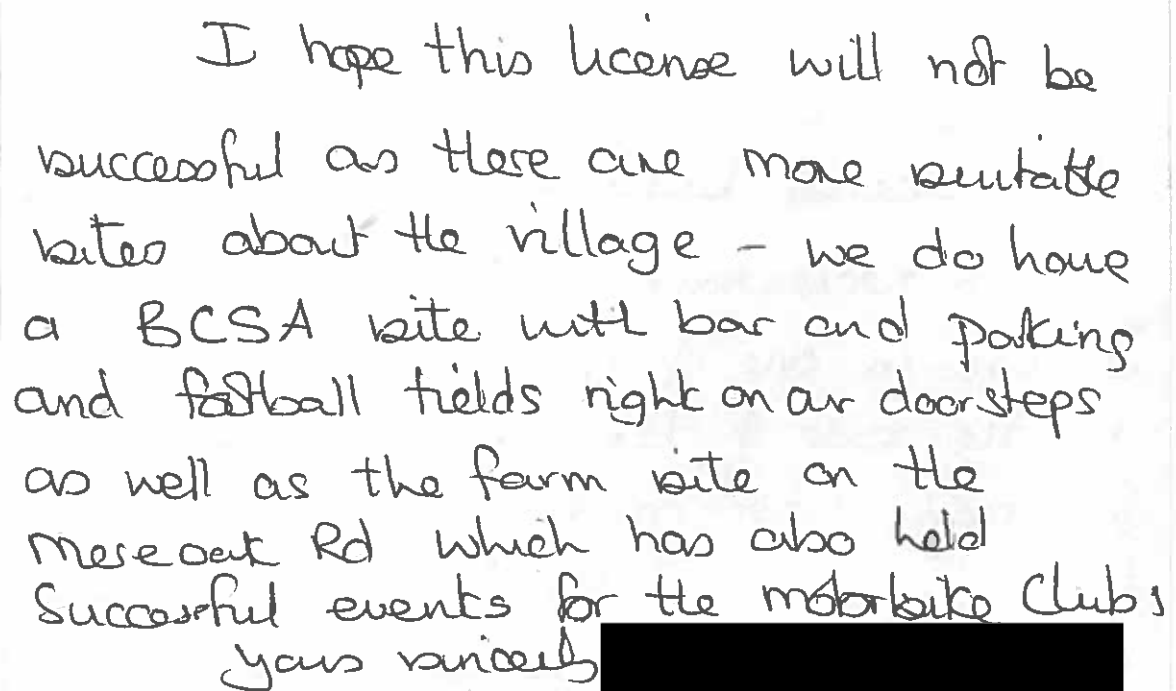 I hope this license will not be
successful as there are more suitable
sites about the village - we do have
a BCSA site with bar and parking
and football fields right on our doorsteps
as well as the farm site on the
Mereoak Rd which has also held
Successful events for the motorbike Clubs
yours sincerely